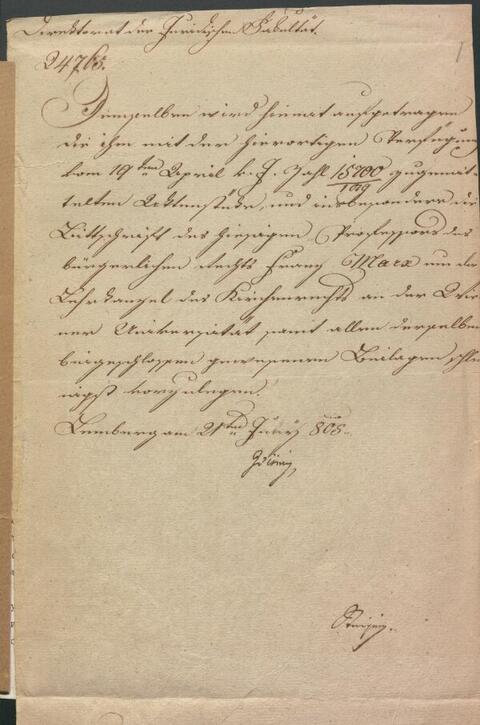 Direktorat der Juridischen Fakultät.
24765.
Demselben wird hiemit aufgetragen
die ihm mit der hierortigen Verfügung
vom 19ten April l. J. Zahl 15700 zugemit-
1049
telten Aktenstüke, und insbesondere die
Bittschrift des hiesigen Professors des
bürgerlichen Rechts Franz Marx um die
Lehrkanzel des Kirchenrechts an der Wie-
ner Universität samt allen derselben
beigeschlossen gewesenen Beilagen schleu-
nigst vorzulegen.
Lemberg am 21ten Juny 808.